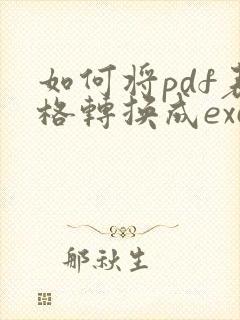 如何将pdf表
格轉换成exc
那秋生